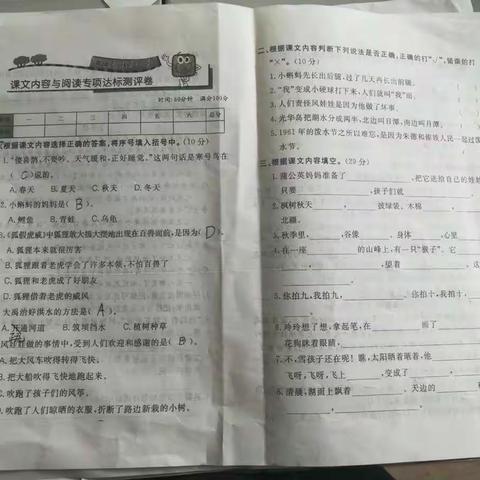 课文内容与阅读专项达标测评卷
时间:60分钟 满分100分
总分
一、根据课文内容选择正确的答案,将序号填入括号中。(10分)
1.“傻喜鹊,不要吵。天气暖和,正好睡觉。”这两句话是寒号鸟在
( C )说的。
A.春天 B.夏天 C.秋天 D.冬天
2.小蝌蚪的妈妈是( B )。
A.鲤鱼 B.青蛙 C.乌龟
3.《狐假虎威》中狐狸敢大摇大摆地出现在百兽面前,是因为( D )。
A.狐狸本来就很厉害
B.狐狸跟着老虎学会了许多本领,不怕百兽了
C.狐狸和老虎成了好朋友
D.狐狸借着老虎的威风
大禹治好洪水的方法是( A )。
A.开通河道 B.筑坝挡水 C.植树种草
做的事情中,受到人们欢迎和感谢的是( B )。
A.把大风车吹得转得飞快。
B.把大船吹得飞快地跑起来。
C.吹跑了孩子们的风筝。
D.吹跑了人们晾晒的衣服,折断了路边新栽的小树。
二、根据课文内容判断下列说法是否正确,正确的打“√”,错误的打
“×”。(10分)
1.小蝌蚪先长出后腿,过了几天再长出前腿。
2.“我”变成小硬球打下来,人们就叫“我”雨。
3.人们责怪风娃娃是因为他做了坏事。
4.光华岛把湖水分成两半,北边叫日潭,南边叫月潭。
5.1961年的泼水节之所以难忘,是因为朱德和傣族人民一起过泼
水节。
三、根据课文内容填空。(29分)
1.蒲公英妈妈准备了 ,把它送给自己的娃娃
只要 ,孩子们就
2.枫树秋天 , 披绿装。木棉
北疆。
3.秋季里, ,谷像 、身体 、心里
4.在一座 的山峰上,有一只“猴子”。它
, 望着
5.你拍九,我拍九, 。你拍十,我拍十,
。
6.玲玲想了想,拿起笔,在 画了
花狗眯着眼睛,
7.不,雪孩子还在呢!瞧,太阳晒着晒着,他
飞呀,飞呀,飞上 ,变成了
8.清晨,湖面上飘着 。天边的